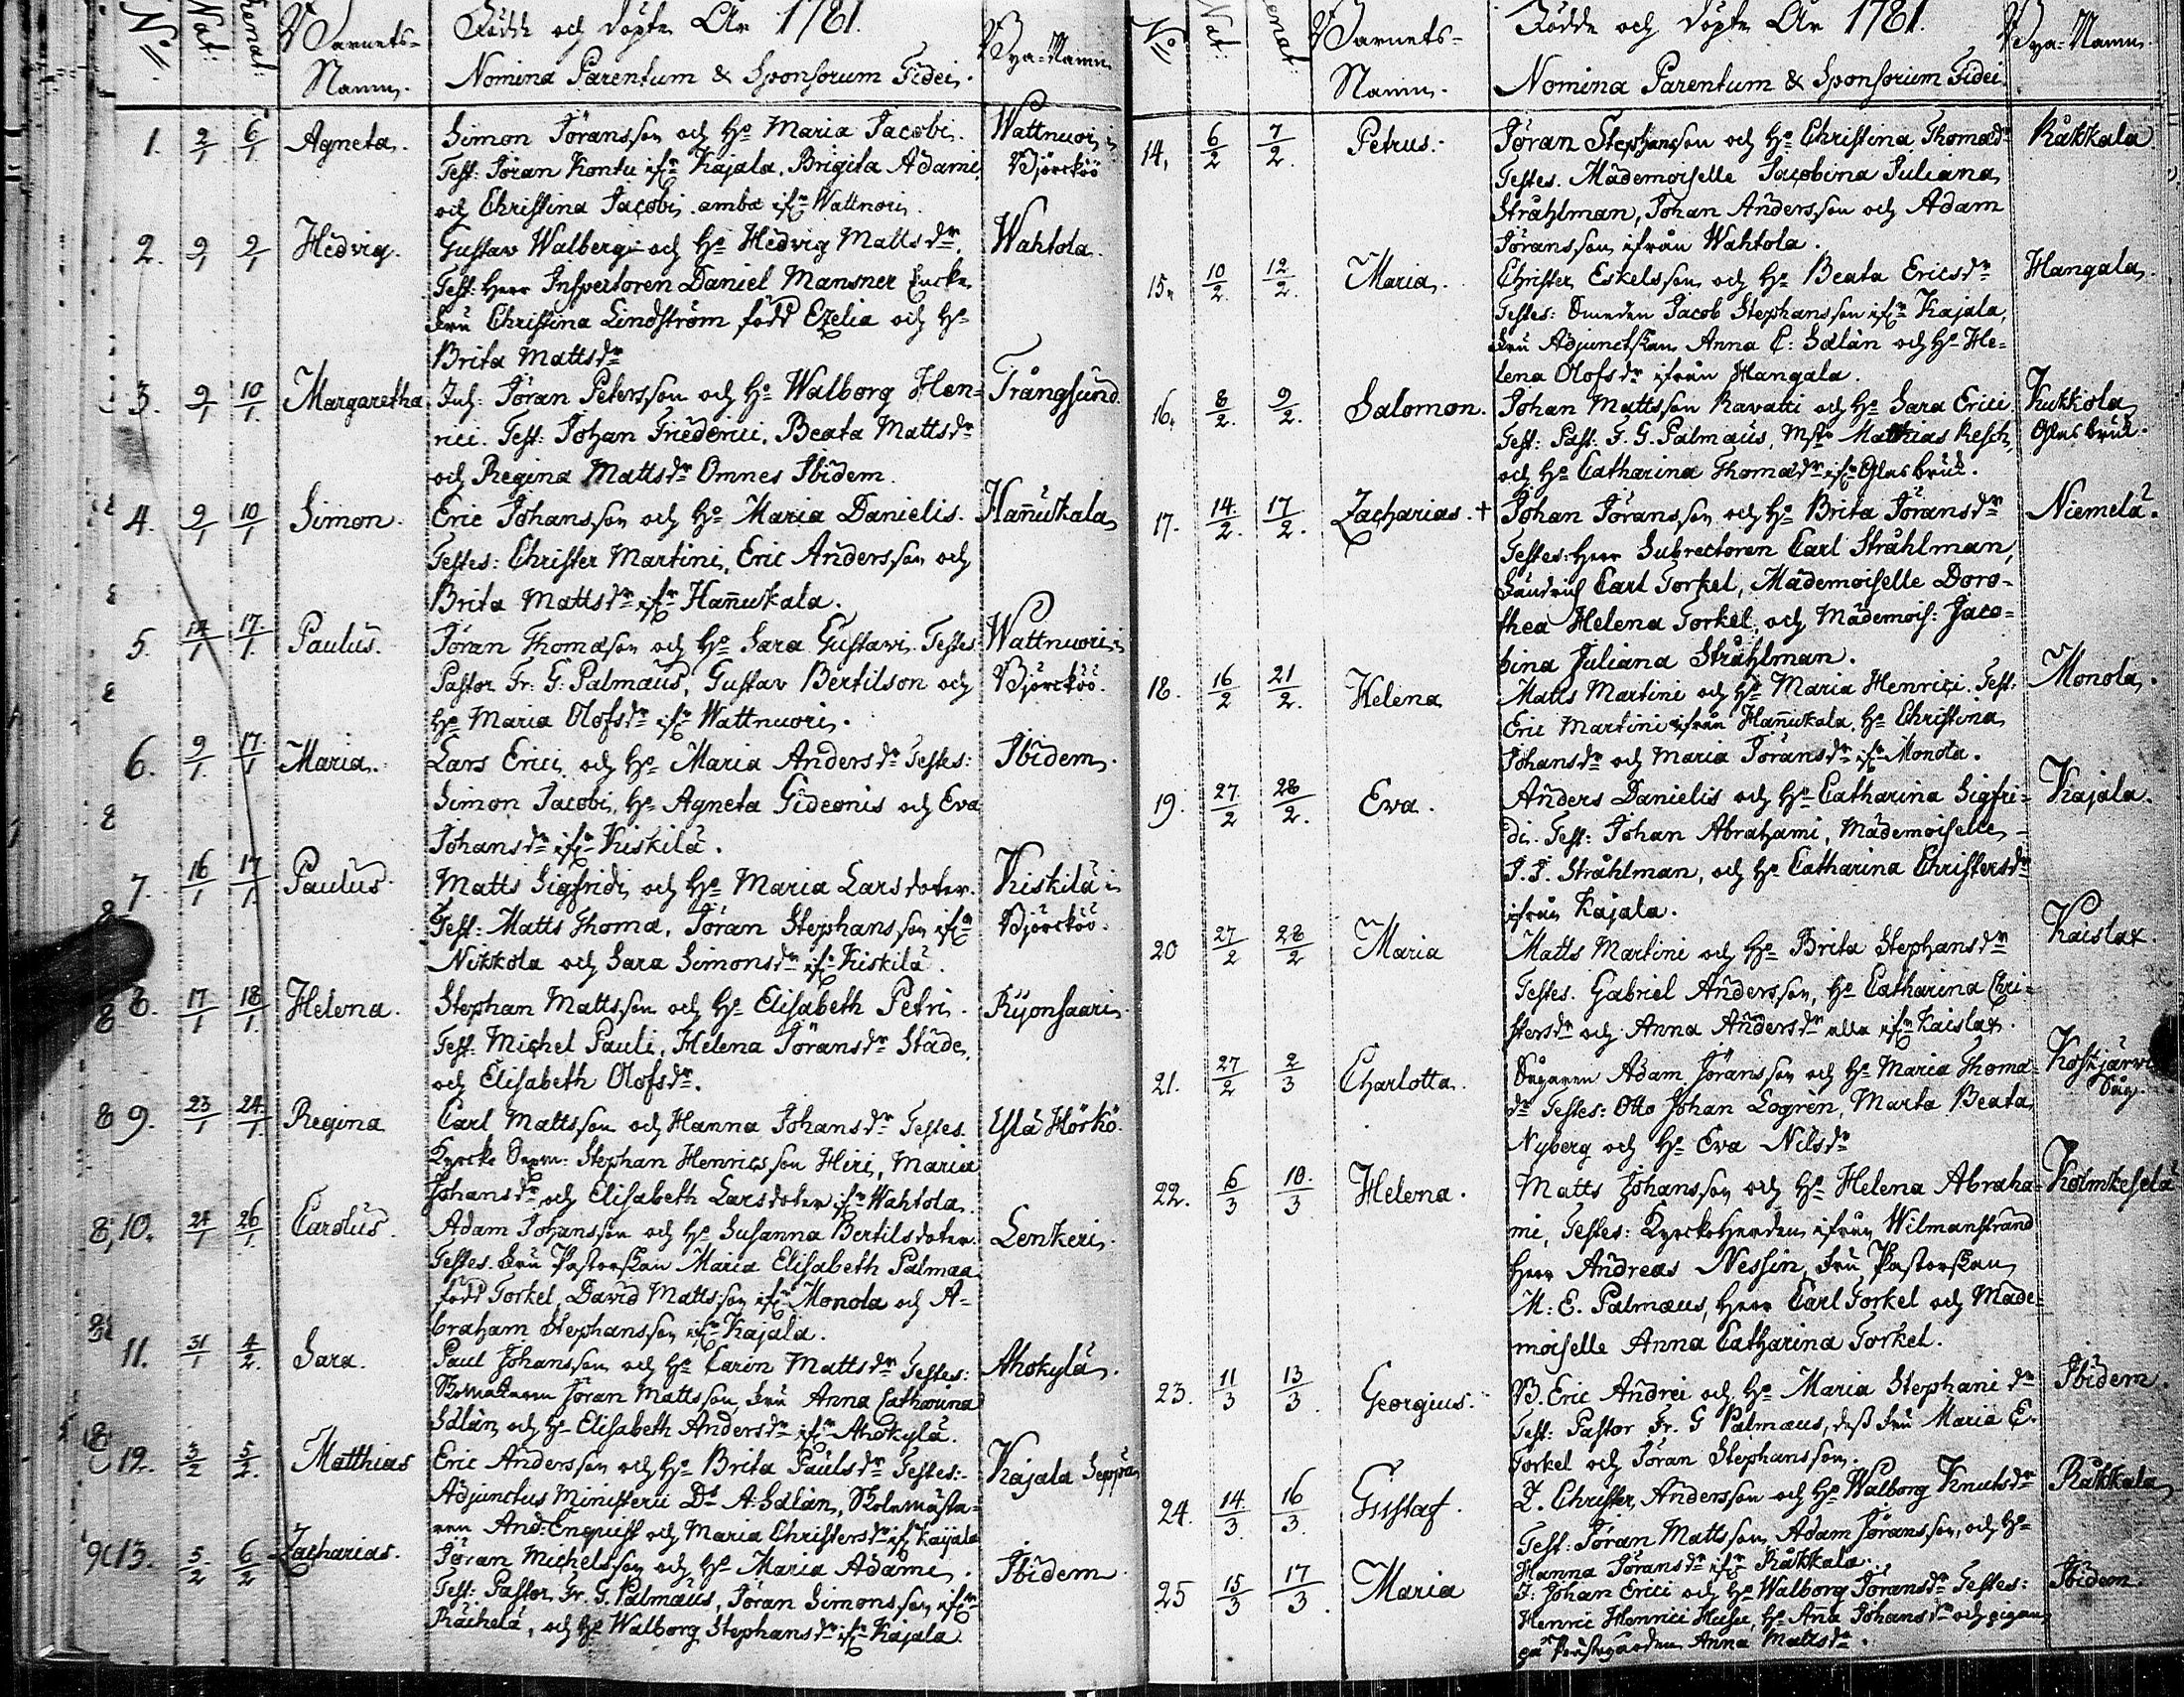 N:o Nat: Renat: Barnets- Födde och döpte År 1781. Bya-Namn
Namn. Nomina Parentum & Sponsorum Fidei.
1. 2/1 6/1 Agneta. Simon Jöransson och H:o Maria Jacobi. Wattnuori i
Test: Jöran Kontu ifr: Kajala, Brigita Adami, Björcköö
och Christina Jacobi. ambæ ifr: Wattnori.
2. 9/1 9/1 Hedvig. Gustav Walberg och H:o Hedvig Mattsdr. Wahtola.
Test: Herr Inspectoren Daniel Mansner
Fru Christina Lindström född Ezelia och H:o
Brita Mattsdr
3. 9/1 10/1 Margaretha Inh: Jöran Petersson och H:o Walborg Hen- Trångsund.
rici. Test: Johan Friederici, Beata Mattsdr
och Regina Mattsdr Omnes Ibidem.
4. 9/1 10/1 Simon. Eric Johansson och H:o Maria Danielis. Hannukala
Testes: Christer Martini, Eric Andersson och
Brita Mattsdr ifr Hannukala.
5. 1 17/1 Paulus. Jöran Thomæson och H:o Sara Gustavi. Testes Wattnuori i
Pastor Fr: G: Palmæus, Gustav Bertilson och Björcköö.
H:o Maria Olofsdr ifr Wattnuori.
6. 9/1 17/1 Maria. Lars Erici och H:o Maria Andersdr Testes: Ibidem.
Simon Jacobi, H:o Agneta Gideonis och Eva
Johansdr ifr Kiskilä.
7. 16/1 17/1 Paulus Matts Sigfridi och H:o Maria Larsdoter. Kiskilä i
Test: Matts Thomæ, Jöran Stephansson ifr Björcköö.
Nikkola och Sara Simonsdr ifr Kiskilä.
8. 17/1 18/1 Helena. Stephan Mattsson och H:o Elisabeth Petri. Ryönsaari.
Test: Michel Pauli, Helena Jöransdr Städe,
och Elisabeth Olofsdr.
9. 23/1 24/1 Regina Carl Mattsson och Hanna Johansdr Testes. Yslä Hörkö.
Kyrcko Stephan Henricsson Hiri, Maria
Johansdr och Elisabeth Larsdoter ifr Wahtola.
10. 24/1 26/1 Carolus. Adam Johansson och H:o Susanna Bertilsdoter. Lenkeri.
Testes. Fru Pastorskan Maria Elisabeth Palmæa
född Forkel, David Mattsson ifr Monola och A-
braham Stephansson ifr Kajala.
11. 31/1 4/2 Sara. Paul Johansson och H:o Carin Mattsdr Testes: Ahokylä.
Skomakaren Jöran Mattsson, Fru Anna Catharina
Sdlän och H:o Elisabeth Andersdr ifr Ahokylä.
12. 3/2 5/2 Matthias Eric Andersson och H:o Brita Paulsdr Testes:- Kajala Seppä
Adjunctus Ministerii Ds A: Sdlän, Skolemästa-
ren And: Enquist och Maria Christersdr ifr Kajala
13. 5/2 6/2 Zacharias. Jöran Michelsson och H:o Maria Adami. Ibidem.
Test: Pastor Fr. G. Palmæus, Jöran Simonsson ifr
Räihelä, och H:o Walborg Stephansdr ifr Kajala.
N:o Nat: Renat: Barnets- Födde och döpte År 1781. Bya-Namn.
Namn. Nomina Parentum & Sponsorum Fidei
14. 6/2 7/2 Petrus. Jöran Stephansson och H:o Christina Thomædr Råkkala
Testes. Mademoiselle Jacobina Juliana
Stråhlman, Johan Andersson och Adam
Jöransson ifrån Wahtola.
15. 10/2 12/2 Maria. Christer Eskelsson och H:o Beata Ericsdr Hangala.
Testes: Smeden Jacob Stephansson ifr Kajala,
Fru Adjunctskan Anna C: Sdlän och H:o He-
lena Olofsdr ifrån Hangala.
16. 8/2 9/2 Salomon. Johan Mattsson Ravatti och H:o Sara Erici Kukkola
Test: Past: F. G. Palmæus, Mstr Matthias Resch, Glas bruk.
och H:o Catharina Thomædr ifr Glasbruk.
17. 14/2 17/2 Zacharias. + Johan Jöransson och H:o Brita Jöransdr Niemelä.
Testes: Herr Subrectoren Carl Stråhlman,
Fändrich Carl Forkel, Mademoiselle Doro-
thea Helena Forkel och Mademois: Jaco-
bina Juliana Stråhlman.
18. 16/2 21/2 Helena Matts Martini och H:o Maria Henrici. Test: Monola.
Eric Martini ifrån Hannukala, H:o Christina
Johansdr och Maria Jöransdr ifr Monola.
19. 27/2 28/2 Eva. Anders Danielis och H:o Catharina Sigfri- Kajala.
di. Test: Johan Abrahami, Mademoiselle
J. J. Stråhlman, och H:o Catharina Christersdr
ifrån Kajala.
20 27/2 28/2 Maria Matts Martini och H:o Brita Stephansdr Kaislax.
Testes. Gabriel Andersson, H:o Catharina Chri-
stersdr och Anna Andersdr alla ifr Kaislax.
21. 27/2 2/3 Charlotta. Sågaren Adam Jöransson och H:o Maria Thomæ- Koskjärvi
dr Testes: Otto Johan Logren, Marta Beata Såg.
Nyberg och H:o Eva Nilsdr
22. 6/3 10/3 Helena. Matts Johansson och H:o Helena Abraha- Kolmkeselä
mi, Testes: Kyrckoherden ifrån Wilmanstrand
Herr Andreas Nessin, Fru Pastorskan
M: E. Palmæus, Herr Carl Forkel och Made-
moiselle Anna Catharina Forkel.
23. 11/3 13/3 Georgius. B. Eric Andrei och H:o Maria Stephani dr Ibidem.
Test: Pastor Fr. G Palmæus, dess Fru Maria E.
Forkel och Jöran Stephansson.
24. 14/3 16/3 Gustaf. Z. Christer Andersson och H:o Walborg Knutsdr Råkkala
Test: Jöran Mattsson, Adam Jöransson, och H:o
Hanna Jöransdr ifr Råkkala.
25 15/3 17/3 Maria J: Johan Erici och H:o Walborg Jöransdr Testes: Ibidem.
Henric Henrici H:o Anna Johansdr och pigan
på Prästegården Anna Mattsdr.